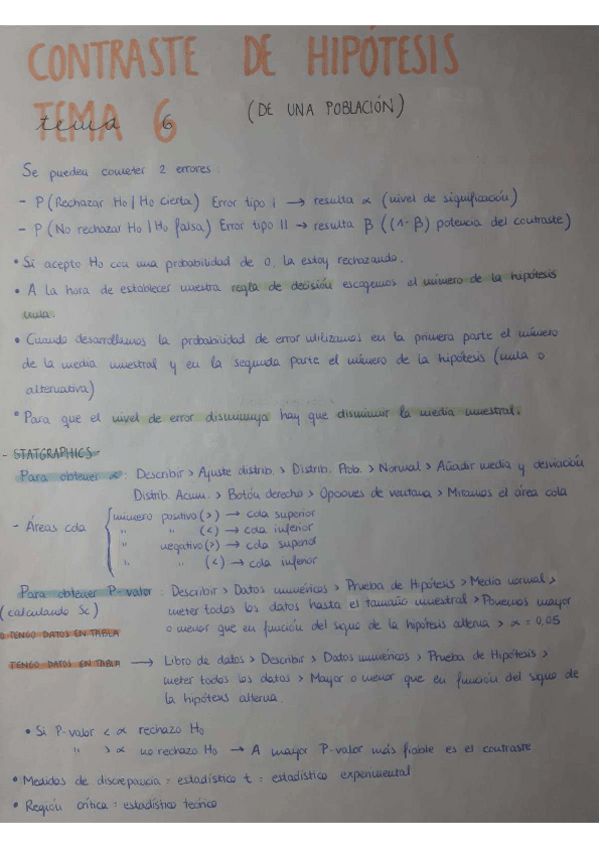 CONTRASTE DE HIPÓTESIS
TEMA 6
tema 6 (DE UNA POBLACIÓN)
Se pueden cometer 2 errores:
- P (Rechazar Ho | Ho cierta) Error tipo I → resulta α (nivel de significación)
- P (No rechazar Ho | Ho falsa) Error tipo II → resulta β ((1-β) potencia del contraste)
• Si acepto Ho con una probabilidad de 0, la estoy rechazando.
• A la hora de establecer nuestra regla de decisión escogemos el número de la hipótesis
nula.
• Cuando desarrollamos la probabilidad de error utilizamos en la primera parte el número
de la media muestral y en la segunda parte el número de la hipótesis (nula o
alternativa)
• Para que el nivel de error disminuya hay que disminuir la media muestral.
- STATGRAPHICS
Para obtener α: Describir > Ajuste distrib. > Distrib. Prob. > Normal > Añadir media y desviación
Distrib. Acum. > Botón derecho > Opciones de ventana > Miramos el área cola
- Áreas cola { número positivo (>) → cola superior
" " (<) → cola inferior
" negativo (>) → cola superior
" " (<) → cola inferior
Para obtener P-valor: Describir > Datos numéricos > Prueba de Hipótesis > Media normal >
(calculando Sc) meter todos los datos hasta el tamaño muestral > Ponemos mayor
O TENGO DATOS EN TABLA o menor que en función del signo de la hipótesis alterna > α = 0,05
TENGO DATOS EN TABLA → Libro de datos > Describir > Datos numéricos > Prueba de Hipótesis >
meter todos los datos > Mayor o menor que en función del signo de
la hipótesis alterna.
• Si P-valor < α rechazo Ho
" > α no rechazo Ho → A mayor P-valor más fiable es el contraste
• Medidas de discrepancia = estadístico t = estadístico experimental
• Región crítica = estadístico teórico